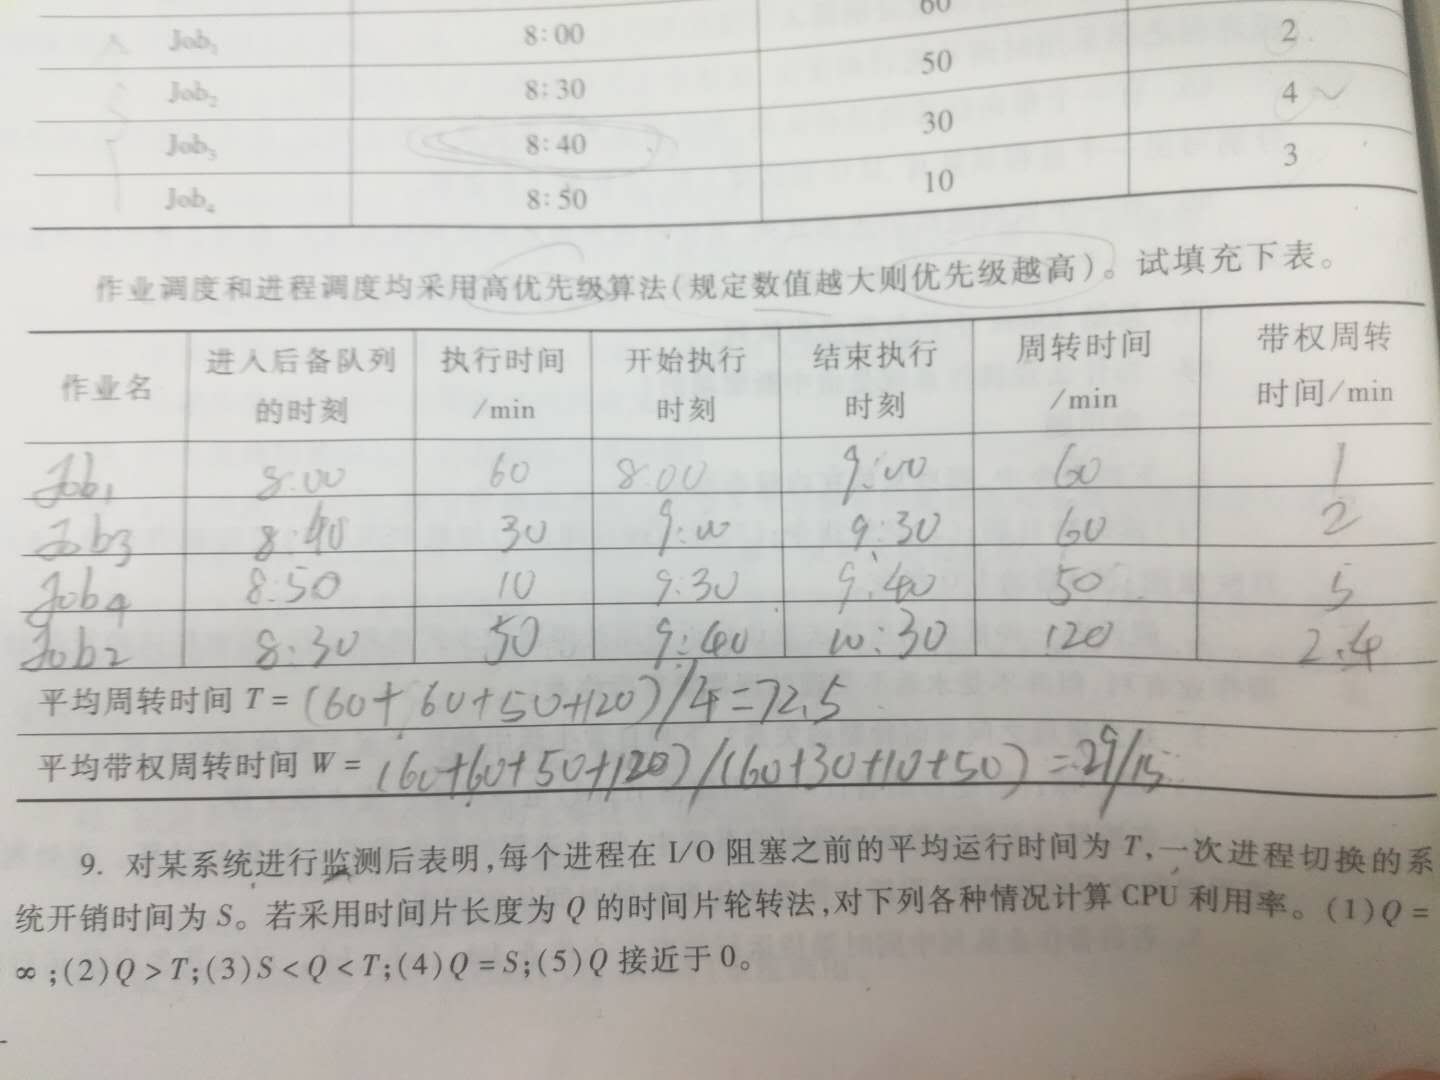 60
Job₁ 8:00 2
50
Job₂ 8:30 4
30
Job₃ 8:40 3
10
Job₄ 8:50
作业调度和进程调度均采用高优先级算法(规定数值越大则优先级越高)。试填充下表。
作业名 进入后备队列的时刻 执行时间/min 开始执行时刻 结束执行时刻 周转时间/min 带权周转时间/min
Job1 8:00 60 8:00 9:00 60 1
Job3 8:40 30 9:00 9:30 60 2
Job4 8:50 10 9:30 9:40 50 5
Job2 8:30 50 9:40 10:30 120 2.4
平均周转时间 T = (60+60+50+120)/4=72.5
平均带权周转时间 W = (60+60+50+120)/(60+30+10+50) = 29/15
9. 对某系统进行监测后表明,每个进程在 I/O 阻塞之前的平均运行时间为 T,一次进程切换的系
统开销时间为 S。若采用时间片长度为 Q 的时间片轮转法,对下列各种情况计算 CPU 利用率。(1)Q =
∞;(2)Q > T;(3)S < Q < T;(4)Q = S;(5)Q 接近于 0。